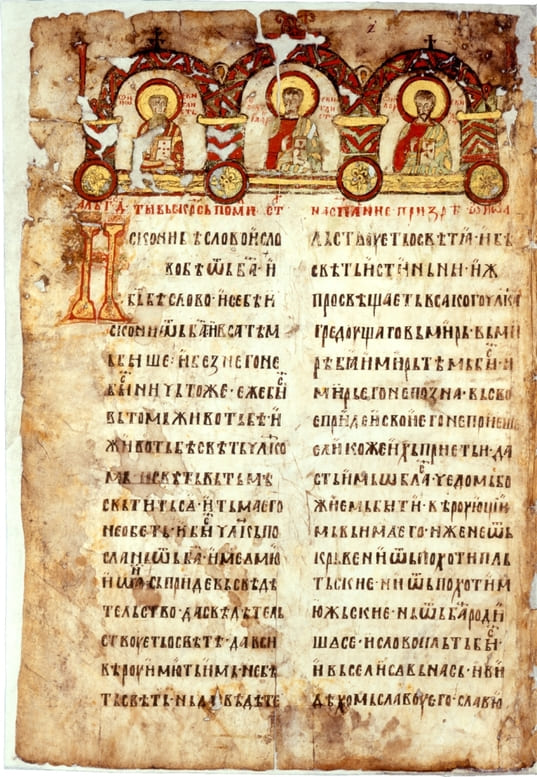 искони бѣ слово и сло
во бѣ ѿ ба҃ · и
бь҃ бѣ слово · и се бѣ и
скони ѿ ба҃ и вса тѣм
ь выше · и без него не
быⷭ ничьтоже · еже быⷭ
вь томь животь бѣ · и
животь бѣ свѣть чл҃ко
мь · и свѣть вь тьмѣ
свьтить са · и тьма его
не обеть · и быⷭ чл҃кь по
слань ѿ ба҃ · име ѥмоу
иѡаⷩ сь приде вь свѣдѣ
тельство · да свѣдѣтель
ствоуеть о свѣтѣ · да вси
вѣроу имоуть имь · не бѣ
ть свѣть · нь да свѣдѣте
льствоуеть о свѣтѣ · и бѣ
свѣть истиньни · иж
просвѣщаеть всакого чл҃ка
гредоущаго вь мирь · вь ми
рѣ бѣ и мирь тѣмь быⷭ · и
мирь его не позна · вь сво
е приде и свои его не приеше
ели коже ихь приеть и · да
сть имь ѡблаⷭ чедомь бо
жиемь быти · вѣроующи
мь вь име его · иже не ѿ
крьве ни ѿ похоти пль
тьские · ни ѿ похоти м
оужьские · нь ѿ ба҃ роди
ше се · и слово пльть быⷭ
и вьсели са вь нась · и ви
дѣхомь славоу его · славоу